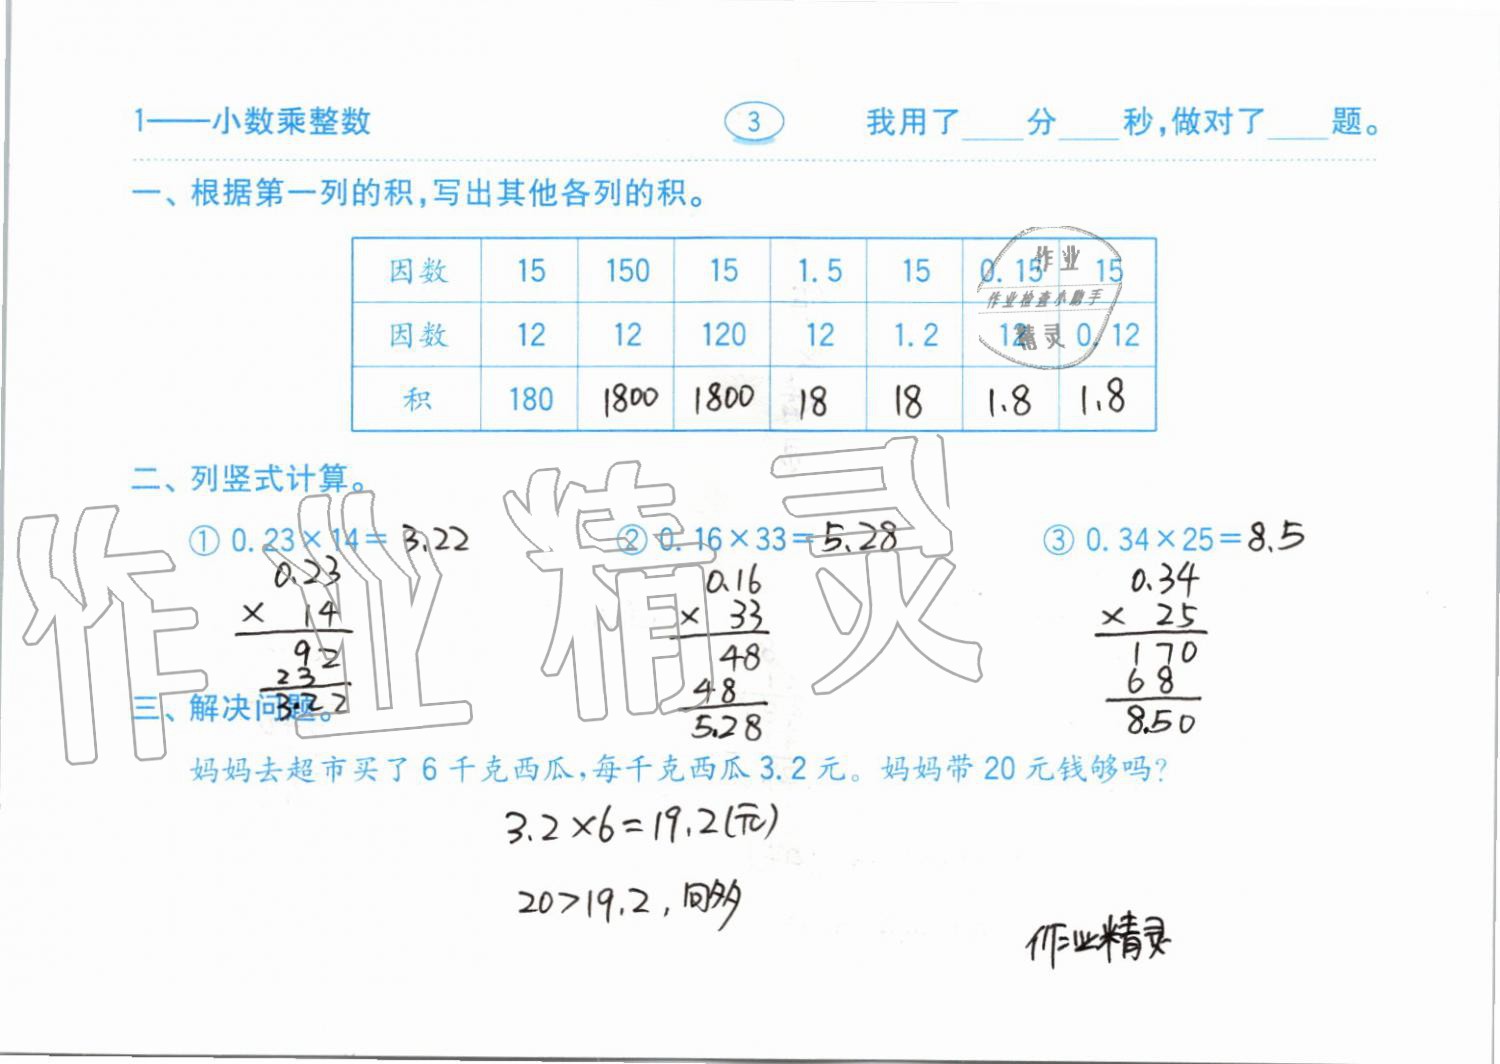 1——小数乘整数 3 我用了____分____秒,做对了____题。
一、根据第一列的积,写出其他各列的积。
因数 15 150 15 1.5 15 0.15 15
因数 12 12 120 12 1.2 12 0.12
积 180 1800 1800 18 18 1.8 1.8
作业
作业检查小助手
精灵
二、列竖式计算。
① 0.23×14=3.22 ② 0.16×33=5.28 ③ 0.34×25=8.5
0.23 0.16 0.34
× 14 × 33 × 25
92 48 170
23 48 68
3.22 5.28 8.50
三、解决问题。
妈妈去超市买了6千克西瓜,每千克西瓜3.2元。妈妈带20元钱够吗?
3.2×6=19.2(元)
20>19.2,
作业精灵
作业精灵